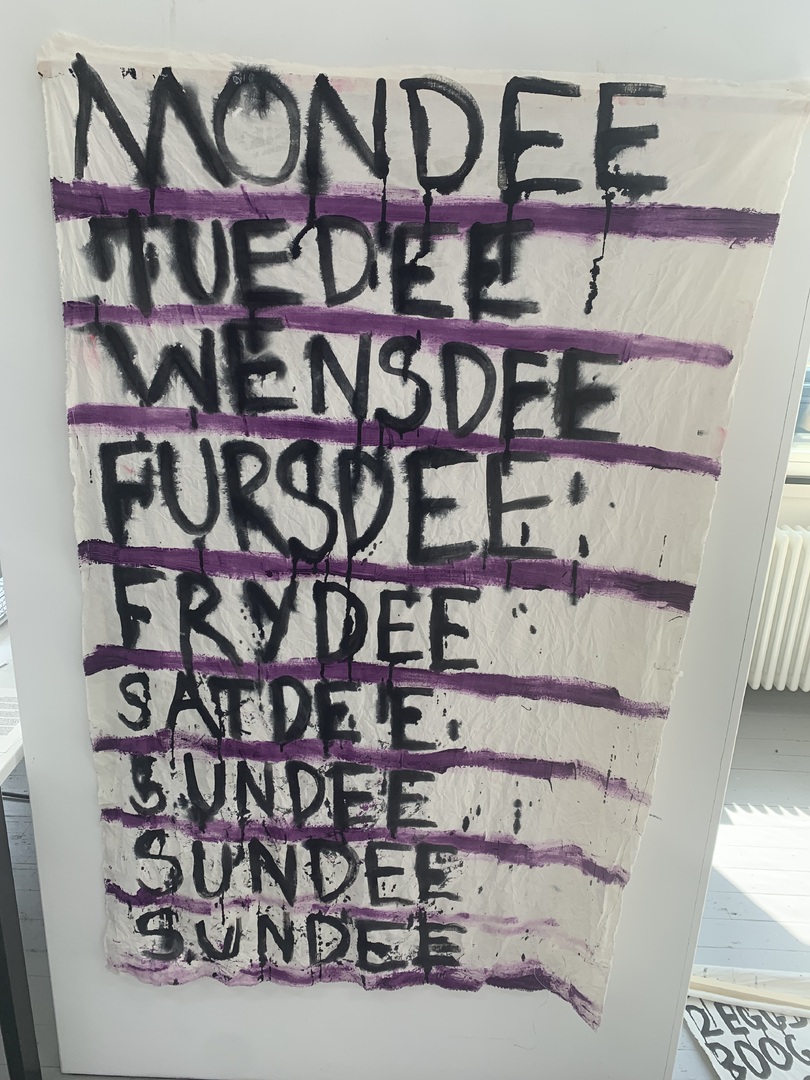 MONDEE
TUEDEE
WENSDEE
FURSDEE
FRYDEE
SATDEE
SUNDEE
SUNDEE
SUNDEE